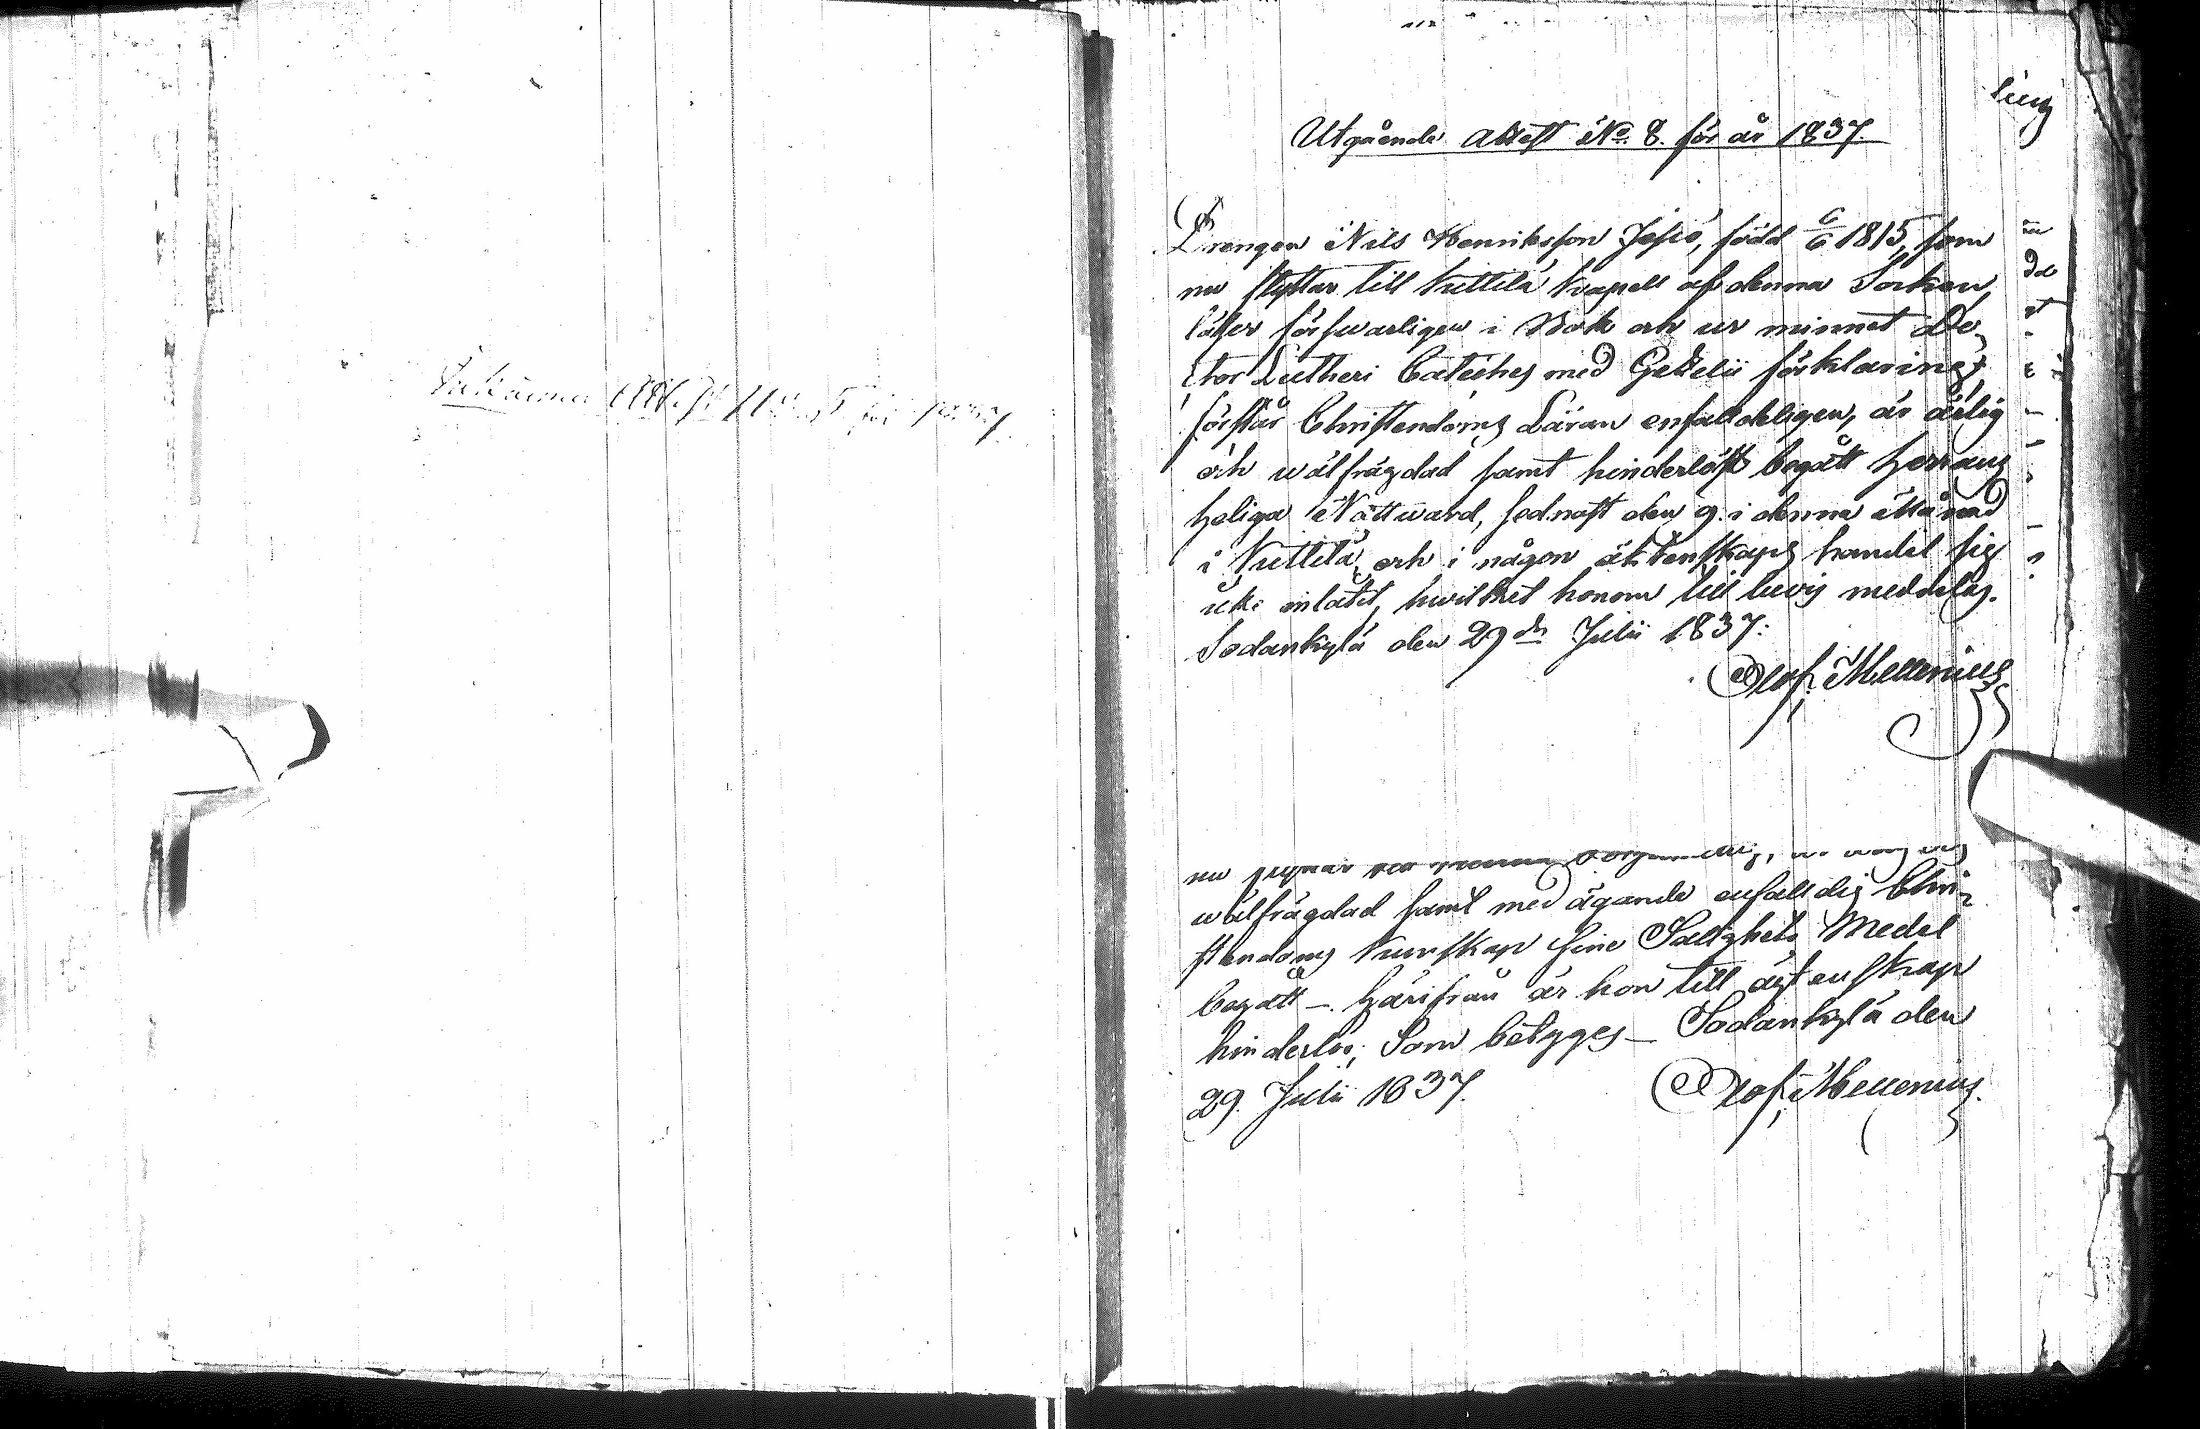 Utgående Attest No. 8. för år 1837.
Drengen Nils Henriksson Jesiö, född 6/6 1815, som
nu flyttar till Kittilä Kapell af denna Socken,
läser försvarligen i Bok och ur minnet Do-
ctor Lutheri Cateches med Gezelii förklaring,
förstår Christendoms Läran enfaldeligen, är ärlig
och wälfrägdad samt hinderlöst begått Herrans
Heliga Nattward, sednast den 9. i denna Månad
i Kittilä, och i någon äktenskaps handel sig
icke inlåtit, hwilket honom till bevis meddelas.
Sodankylä den 29de Julii 1837.
Olof Mellenius
nu
wälfrägdad samt med ägande enfalldig Chri-
stendoms Kunskap sine Salighets Medel
begått _. Härifrån är hon till ägtenskap
hinderlös; Som betyges _ Sodankylä den
29. Julii 1837.
Olof Mellenius.